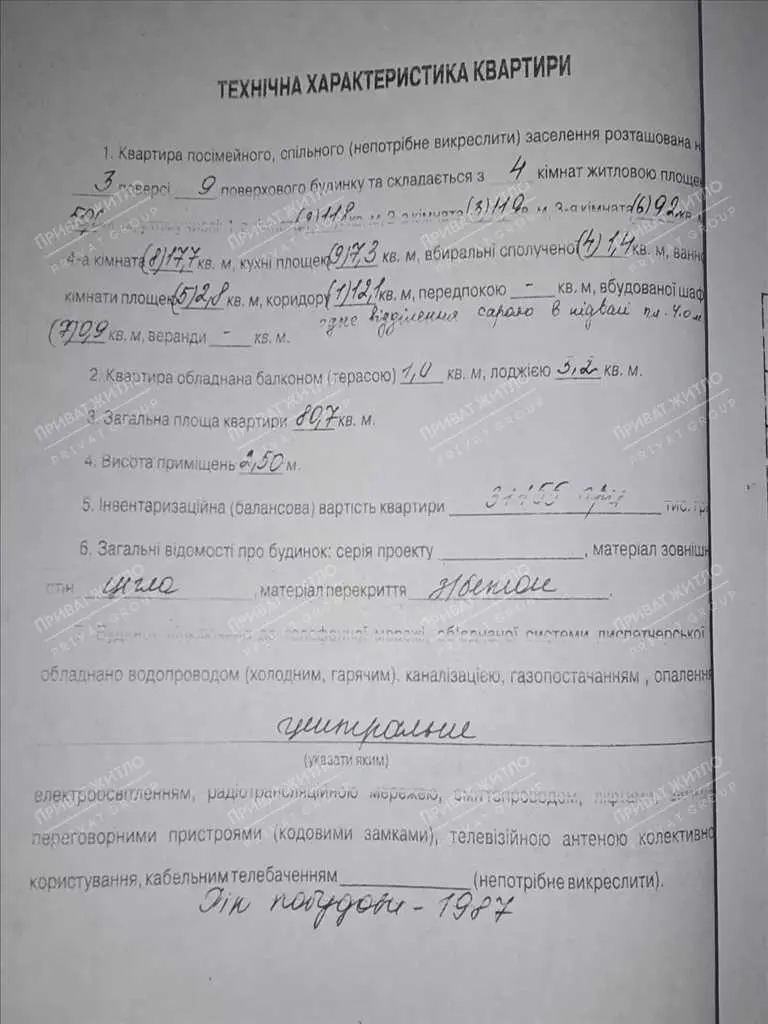 ТЕХНІЧНА ХАРАКТЕРИСТИКА КВАРТИРИ
1. Квартира посімейного, спільного (непотрібне викреслити) заселення розташована н
3 поверсі 9 поверхового будинку та складається з 4 кімнат житловою площею
(2) 11,8 кв. м, 2-а кімната (3) 11,9 кв. м, 3-а кімната (6) 9,2 кв. м
4-а кімната (8) 17,7 кв. м, кухні площею (9) 7,3 кв. м, вбиральні сполучено (4) 1,4 кв. м, ванно
кімнати площею (5) 2,8 кв. м, коридор (1) 12,1 кв. м, передпокою - кв. м, вбудованої шаф
одне відділення сараю в підвалі пл. 4.0 м
(7) 0,9 кв. м, веранди - кв. м.
2. Квартира обладнана балконом (терасою) 1,0 кв. м, лоджією 3,2 кв. м.
3. Загальна площа квартири 80,7 кв. м.
4. Висота приміщень 2,50 м.
5. Інвентаризаційна (балансова) вартість квартири тис. гр
6. Загальні відомості про будинок: серія проекту , матеріал зовнішн
стін цегла , матеріал перекриття з/бетон .
до телефонної мережі, об'єднаної системи диспетчерської
обладнано водопроводом (холодним, гарячим). каналізацією, газопостачанням , опаленн
центральне
(указати яким)
електроосвітленням, радіотрансляційною мережею, сміттєпроводом, ліфтами,
переговорними пристроями (кодовими замками), телевізійною антеною колективно
користування, кабельним телебаченням (непотрібне викреслити).
Рік побудови - 1987
ПРИВАТ ЖИТЛО
PRIVAT GROUP